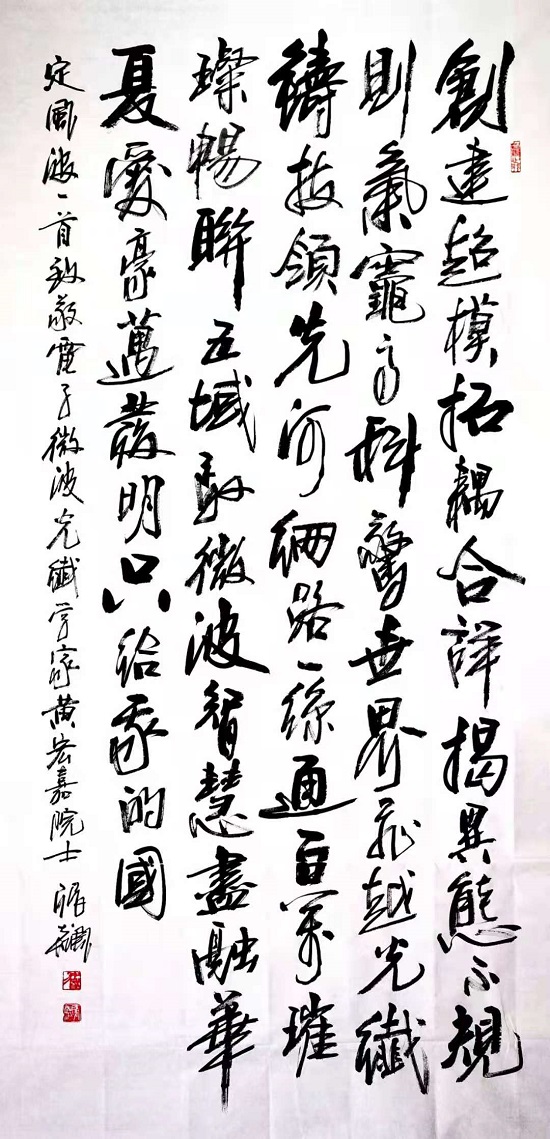 創建超模拓耦合詳揭異態不規
則氣竈高科驚世界飛越光纖
鑄技領先河網路一絲通百萬璀
璨暢聯五域馭微波智慧盡融華
夏愛豪邁發明只給我的國
定風波一首致敬電子微波光纖學家黃宏嘉院士